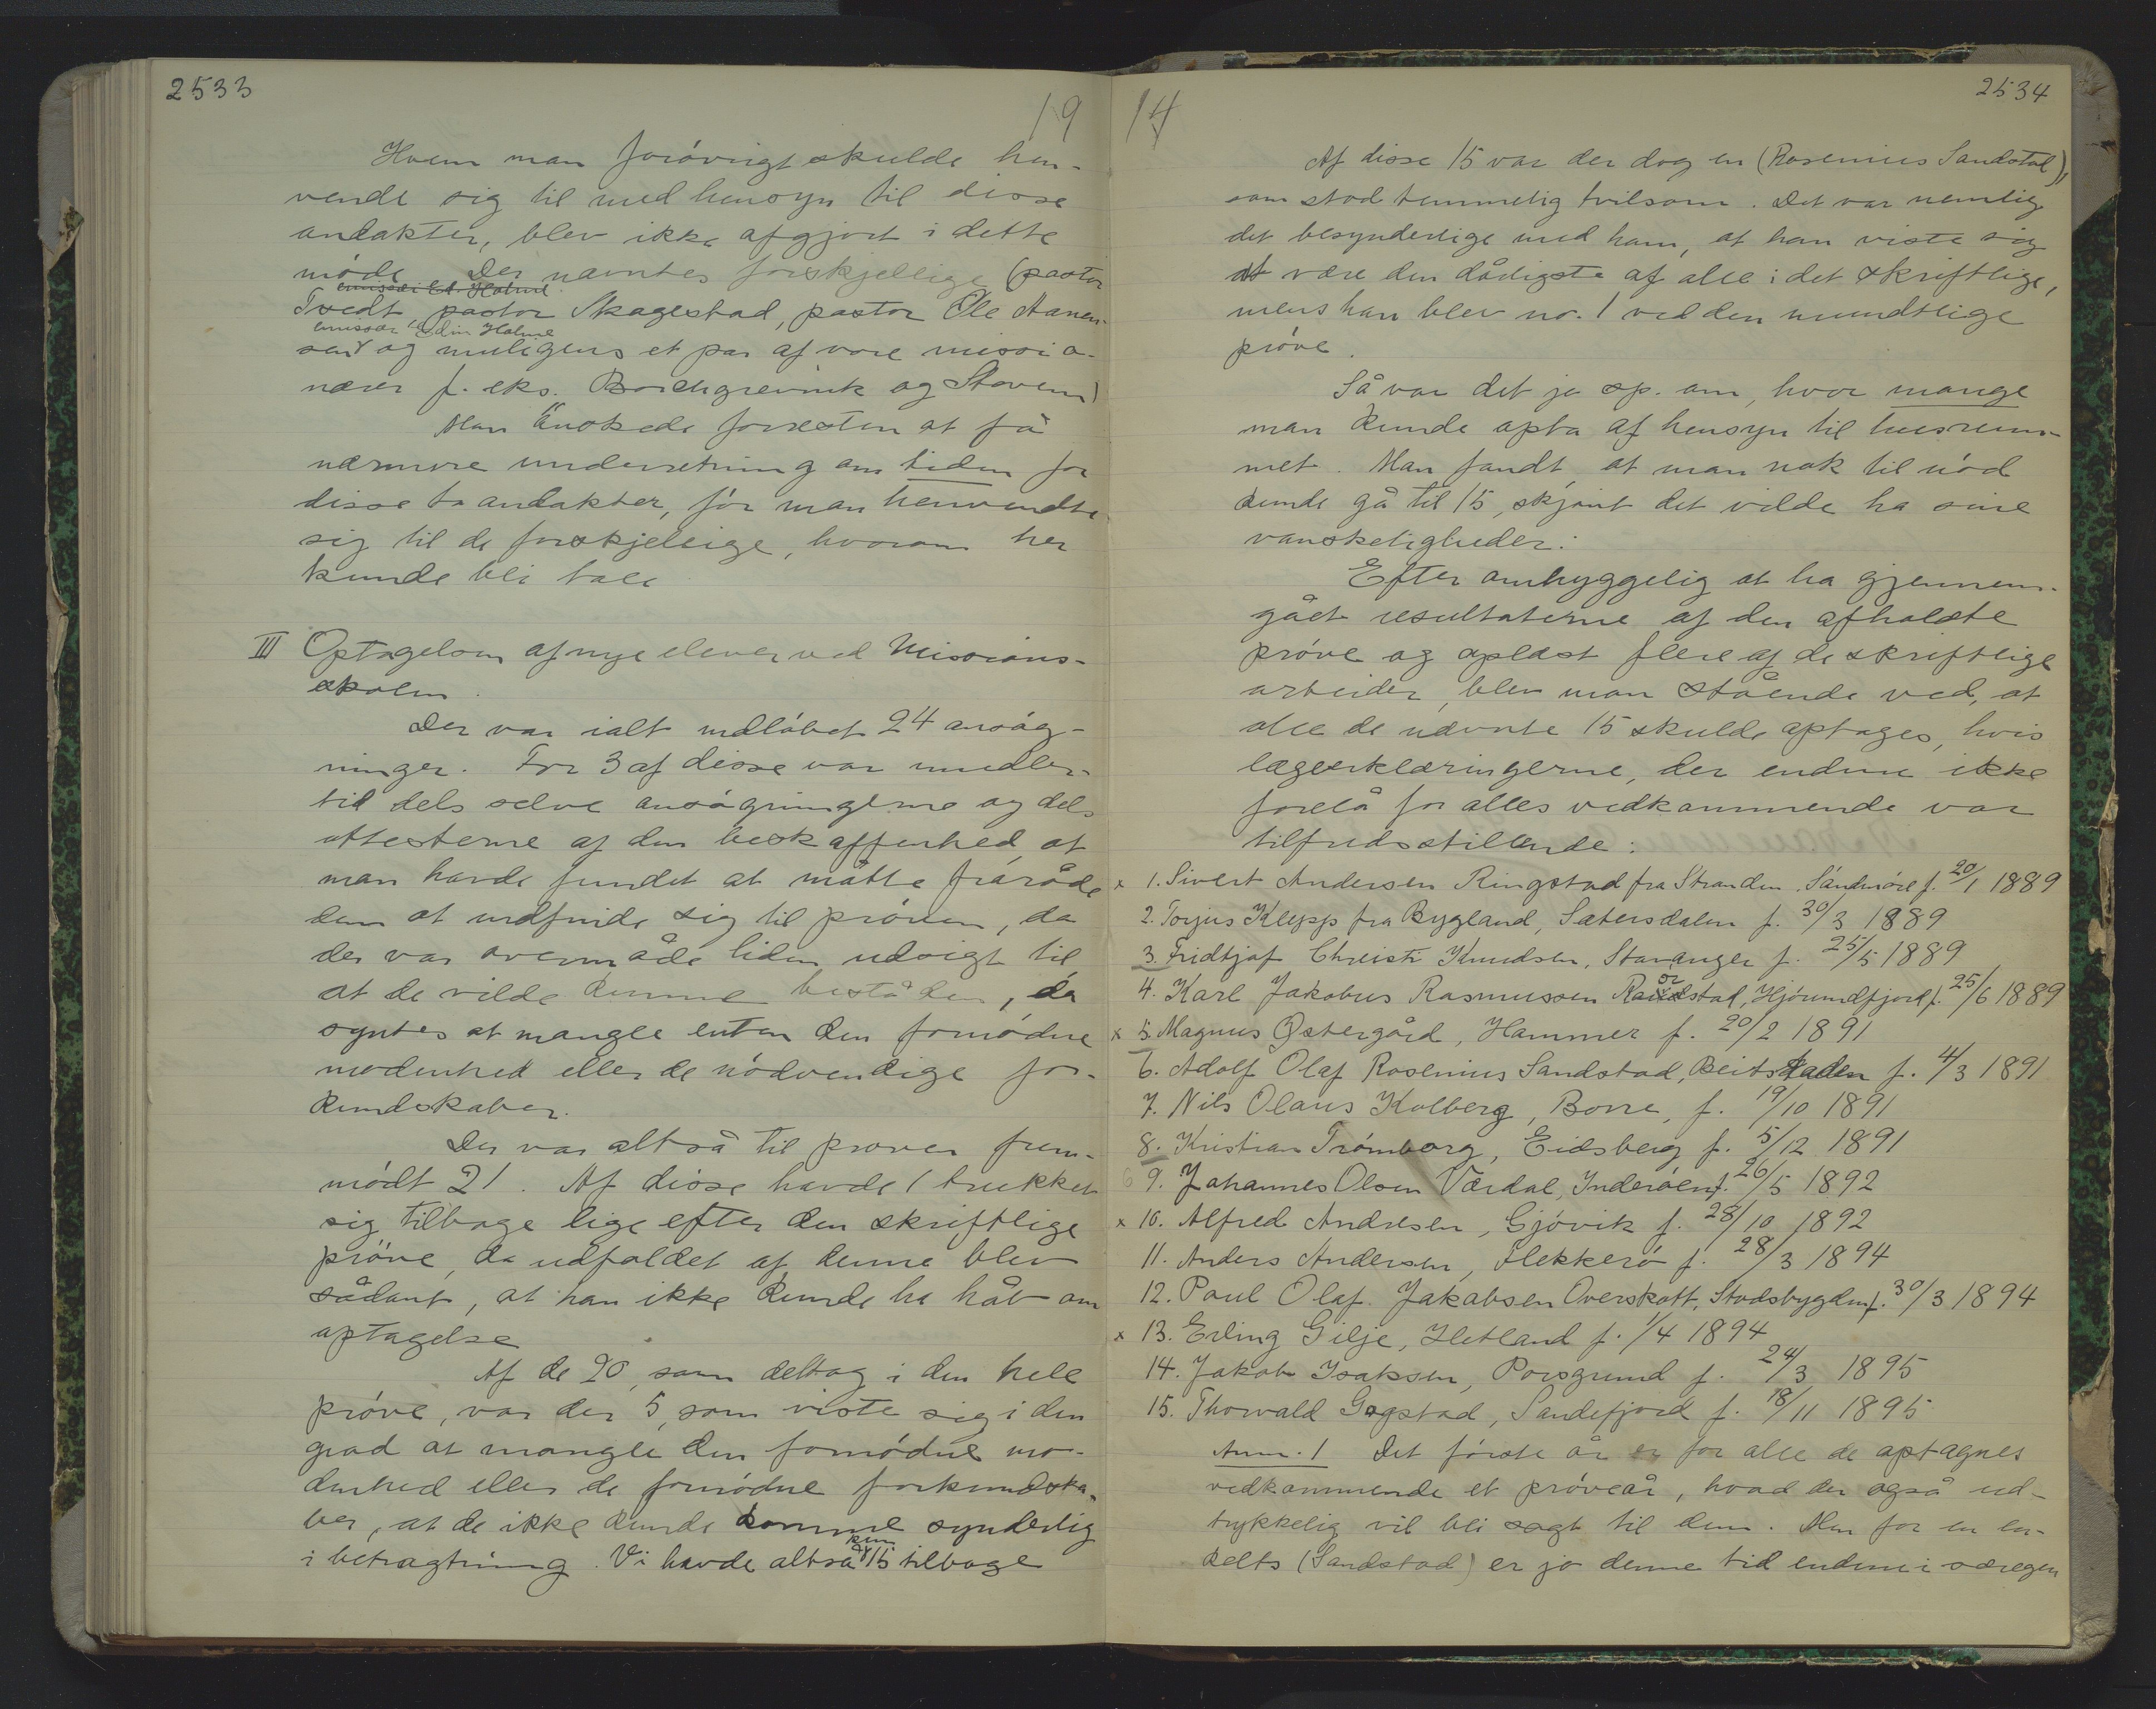 2533
19
Hvem man forøvrigt skulde hen-
vende sig til med hensyn til disse
andakter, blev ikke afgjort i dette
møde. Der nævntes forskjellige (pastor
emissær Ed. Holme
Tvedt, pastor Skagestad, pastor Ole Hanen-
emissær Edin Holme
sen og muligens et par af vore missio-
nærer f. eks. Borchgrevink og Stovem)
Man ønskede forresten at få
nærmere underretning om tiden for
disse to andakter, før man henvendte
sig til de forskjellige, hvorom her
kunde bli tale
III Optagelsen af nye elever ved Missions-
skolen.
Der var ialt indløbet 24 ansøg-
ninger. For 3 af disse var imidler-
tid dels selve ansøgningerne og dels
attesterne af den beskaffenhed, at
man havde fundet at måtte fraråde
dem at indfinde sig til prøven, da
der var overmåde liden udsigt til
at de vilde kunne bestå den, da
syntes at mangle enten den fornødne
modenhed eller de nødvendige for-
kundskaber.
Der var altså til prøven frem-
mødt 21. Af disse havde 1 trukket
sig tilbage lige efter den skriftlige
prøve, da udfaldet af denne blev
sådant, at han ikke kunde ha håb om
optagelse
Af de 20, som deltog i den hele
prøve, var der 5, som viste sig i den
grad at mangle den fornødne mo-
denhed eller de fornødne forkundska-
ber, at de ikke kunde komme synderlig
i betragtning. Vi havde altså kun 15 tilbage
14
2534
Af disse 15 var der dog en (Rosenius Sandstad),
som stod temmelig tvilsom. Det var nemlig
det besynderlige med ham, at han viste sig
at være den dårligste af alle i det skriftlige,
mens han blev no. 1 ved den mundtlige
prøve.
Så var det jo sp. om, hvor mange
man kunde opta af hensyn til husrum-
met. Man fandt, at man nok til nød
kunde gå til 15, skjønt det vilde ha sine
vanskeligheder.
Efter omhyggelig at ha gjennem-
gået resultaterne af den afholdte
prøve og oplæst flere af de skriftlige
arbeider, blev man stående ved, at
alle de nævnte 15 skulde optages, hvis
lægeerklæringerne, der endnu ikke
forelå for alles vedkommende var
tilfredsstillende:
x 1. Sivert Andersen Ringstad fra Stranden, Søndmøre f. 20/1 1889
2. Torjus Klepp fra Bygland, Sætersdalen f. 30/3 1889
3. Fridtjof Christi Knudsen, Stavanger f. 25/5 1889
4. Karl Jakobus Rasmussen Raudstad, Hjørundfjord f. 25/6 1889
x 5. Magnus Østergård, Hammer f. 20/2 1891
6. Adolf Olaf Rosenius Sandstad, Beitstaden f. 4/3 1891
7. Nils Olaus Kolberg, Borre, f. 19/10 1891
8. Kristian Trømborg, Eidsberg f. 5/12 1891
9. Johannes Olsen Værdal, Inderøen f. 26/5 1892
x 10. Alfred Andresen, Gjøvik f. 28/10 1892
11. Anders Andersen, Flekkerø f. 28/3 1894
12. Paul Olaf Jakobsen Overskott, Stodsbygden f. 30/3 1894
x 13. Erling Gilje, Hetland f. 1/4 1894
14. Jakob Isaksen, Porsgrund f. 24/3 1895
15. Thorvald Gogstad, Sandefjord f. 18/11 1895
Anm. 1 Det første år er for alle de optagnes
vedkommende et prøveår, hvad der også ud-
trykkelig vil bli sagt til dem. Men for en en-
kelts (Sandstad) er jo denne tid endnu i særegen